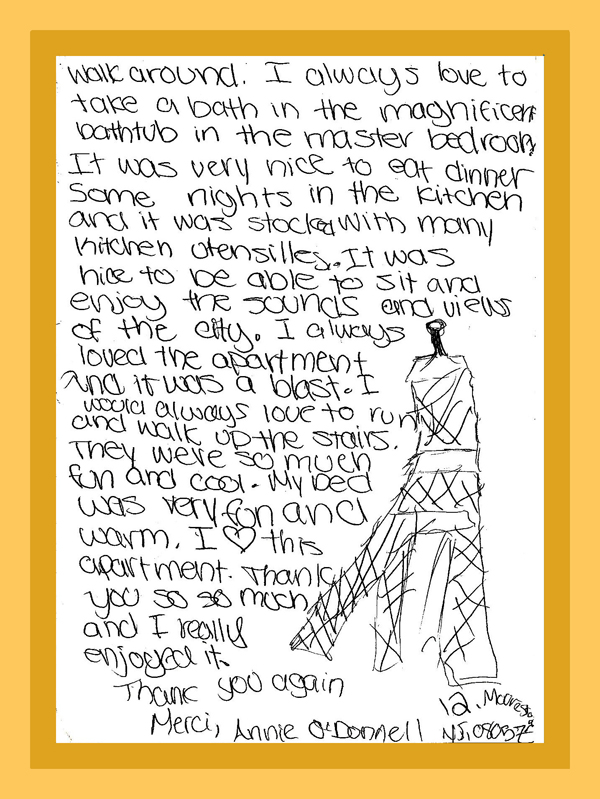 walk around. I always love to
take a bath in the magnificent
bathtub in the master bedroom
It was very nice to eat dinner
Some nights in the kitchen
and it was stocked with many
kitchen utensilles. It was
nice to be able to sit and
enjoy the sounds and views
of the city. I always
loved the apartment
And it was a blast. I
would always love to run
and walk up the stairs.
They were so much
fun and cool. My bed
was very fun and
warm. I ♡ this
apartment. Thank
you so so much
and I really
enjoyed it.
Thank you again
Merci, Annie O'Donnell
12, 
NJ, 08057